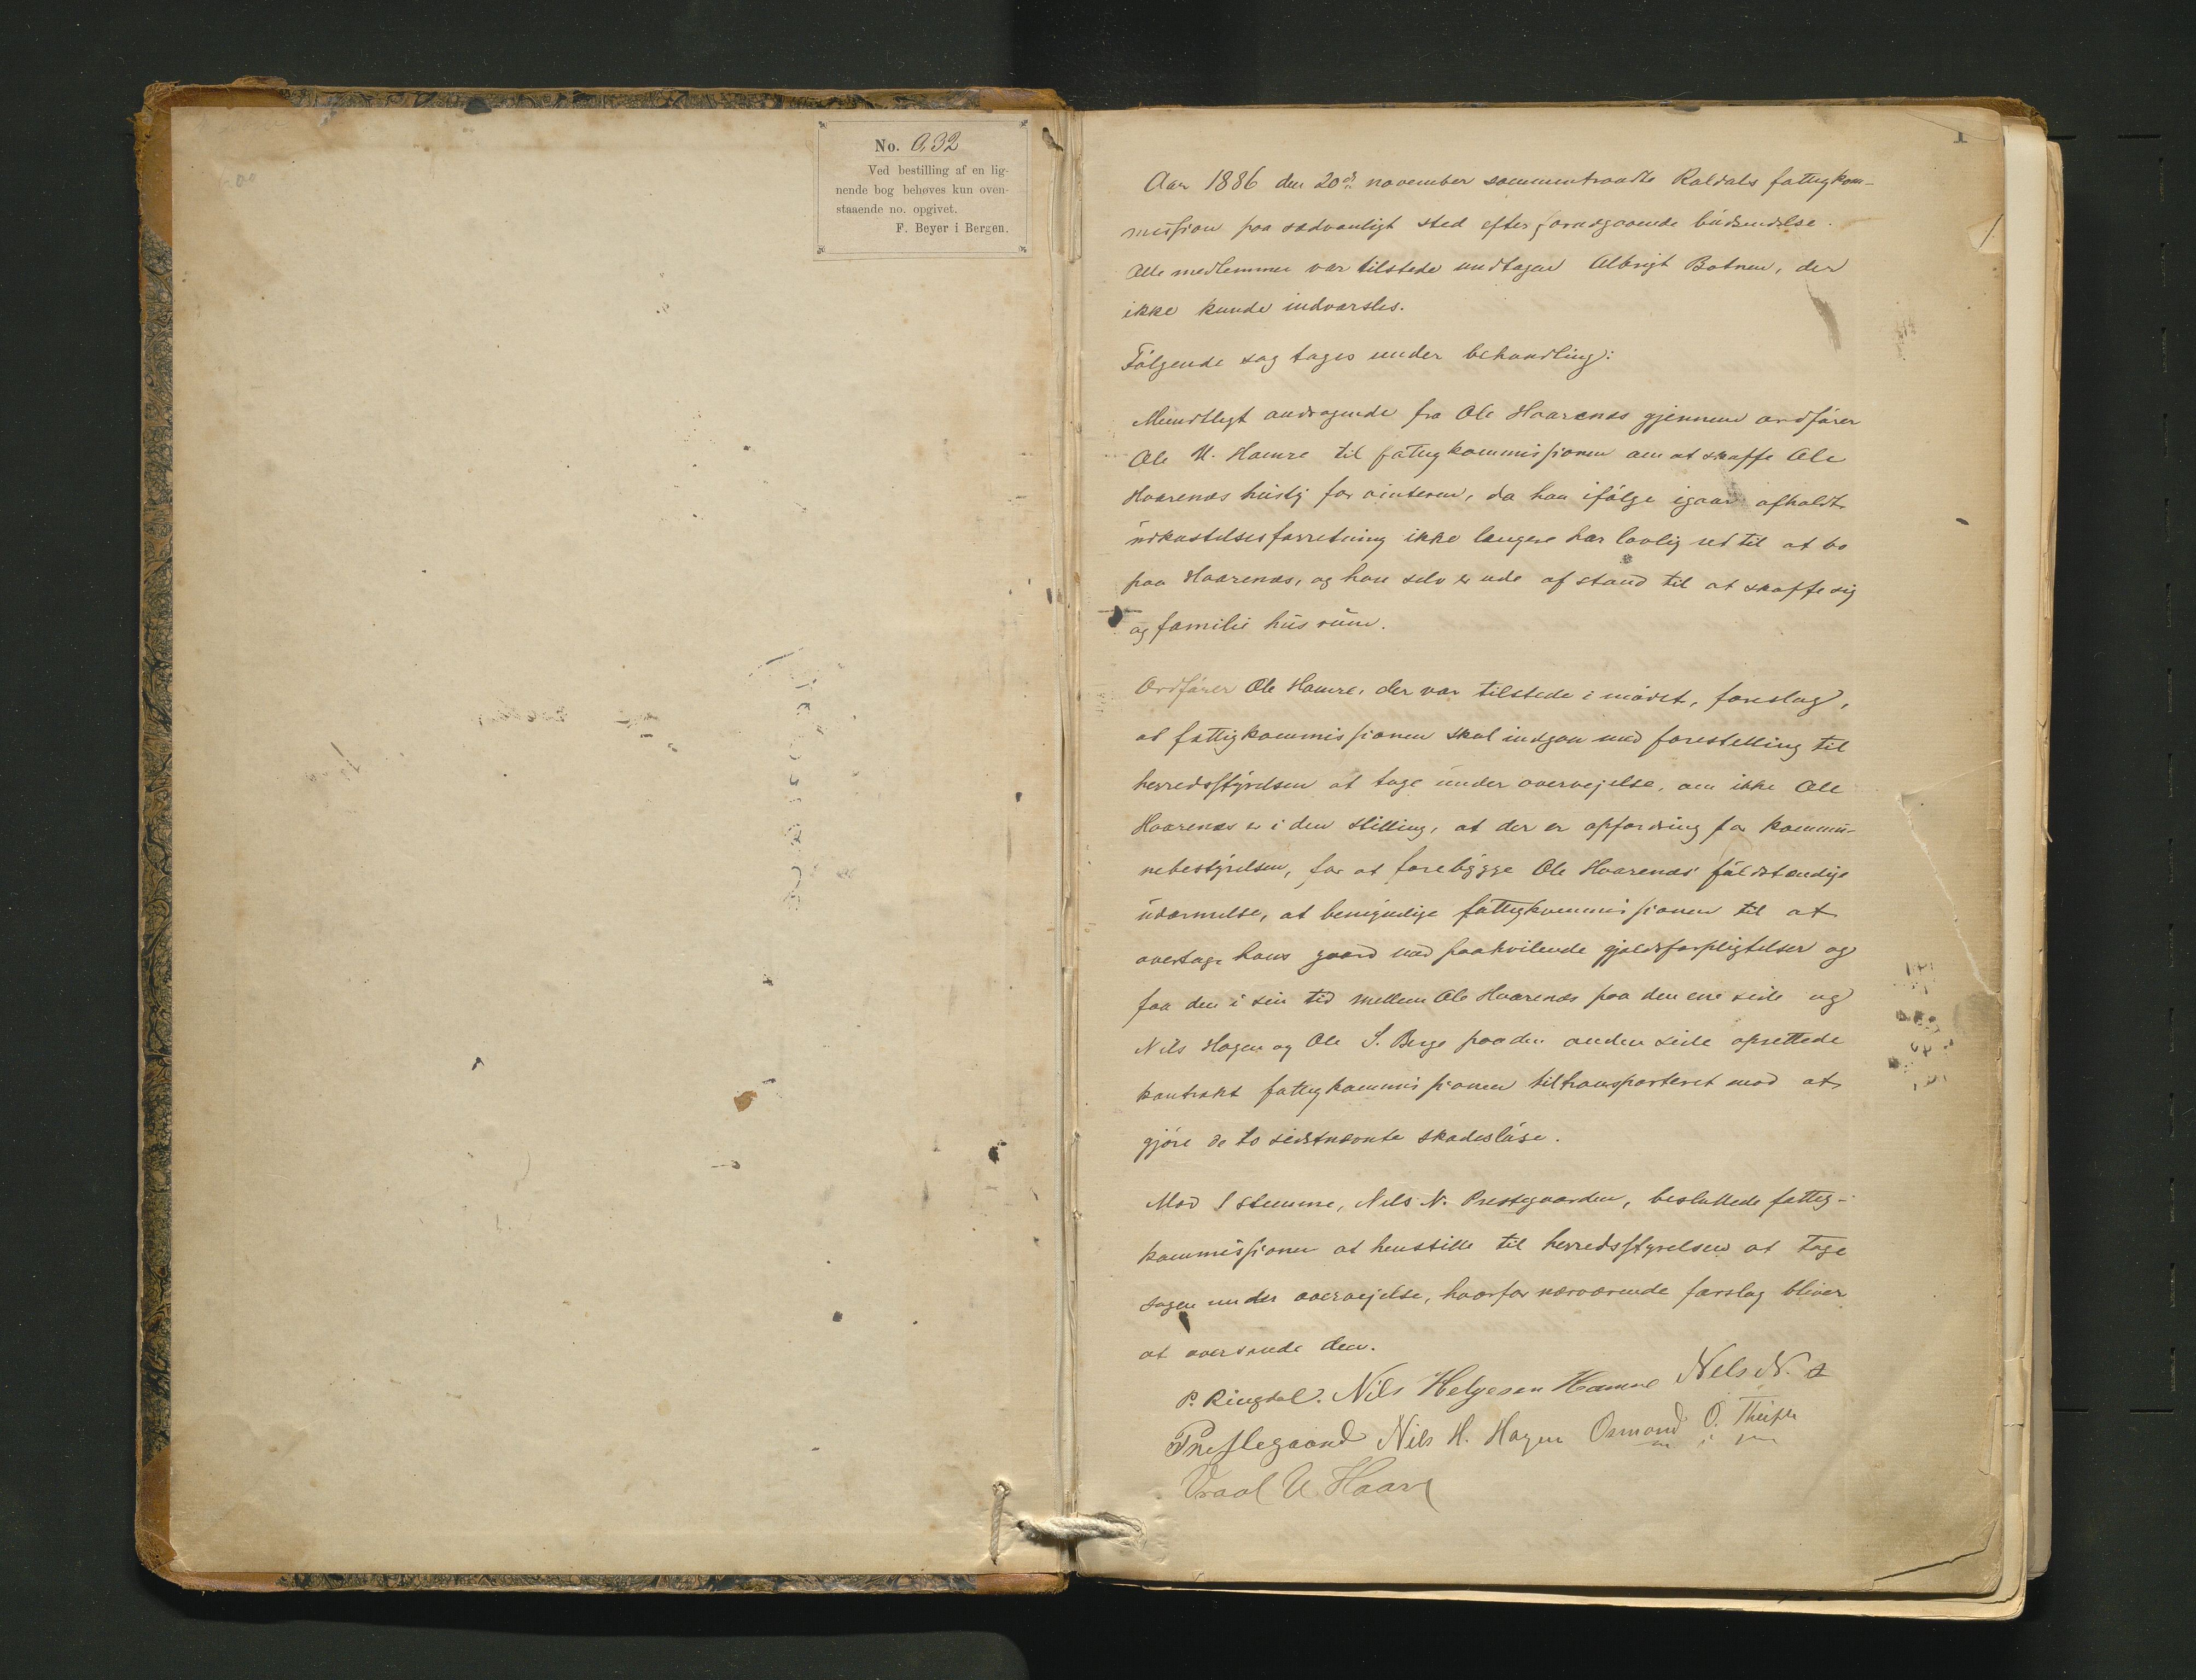 No. 0,32
Ved bestilling af en lig-
nende bog behøves kun oven-
staaende no. opgivet.
F. Beyer i Bergen.
1
Aar 1886 den 20de november sammentraadte Røldals fattigkom-
mission paa sædvanligt sted efter foregaaende budsendelse.
Alle medlemmer var tilstede undtagen Albrigt Botnen, der
ikke kunde indvarsles.
Følgende sag toges under behandling:
Mundtligt andragende fra Ole Haarenæs gjennem ordfører
Ole N. Hamre til fattigkommissionen om at skaffe Ole
Haarenæs husly for vinteren, da han ifølge igaar afholdt
udkastelsesforretning ikke længere har lovlig ret til at bo
paa Haarenæs, og han selv er ude af stand til at skaffe sig
og familie husrum.
Ordfører Ole Hamre, der var tilstede i mødet, foreslog,
at fattigkommissionen skal indgaa med forestilling til
herredsstyrelsen at tage under overvejelse, om ikke Ole
Haarenæs er i den stilling, at der er opfordring for kommu-
nebestyrelsen, for at forebygge Ole Haarenæs' fuldstændige
udarmelse, at bemyndige fattigkommissionen til at
overtage hans gaard med paahvilende gjældsforpligtelser og
faa den i sin tid mellem Ole Haarenæs paa den ene side og
Nils Hagen og Ole S. Berge paa den anden side oprettede
kontrakt fattigkommissionen tiltransporteret mod at
gjøre de to sidstnævnte skadesløse.
Mod 1 stemme, Nels N. Prestegaarden, besluttede fattig-
kommissionen at henstille til herredsstyrelsen at tage
sagen under overvejelse, hvorfor nærværende forslag bliver
at oversende den.
P. Ringdal. Nils Helgesen Hamre Nels N.
Prestegaard Nils H. Hagen Osmond O.
Vraal U. Haare